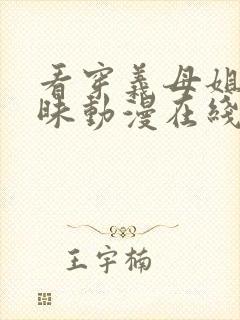 看穿義母姐
昧動漫在綫
王宇楠